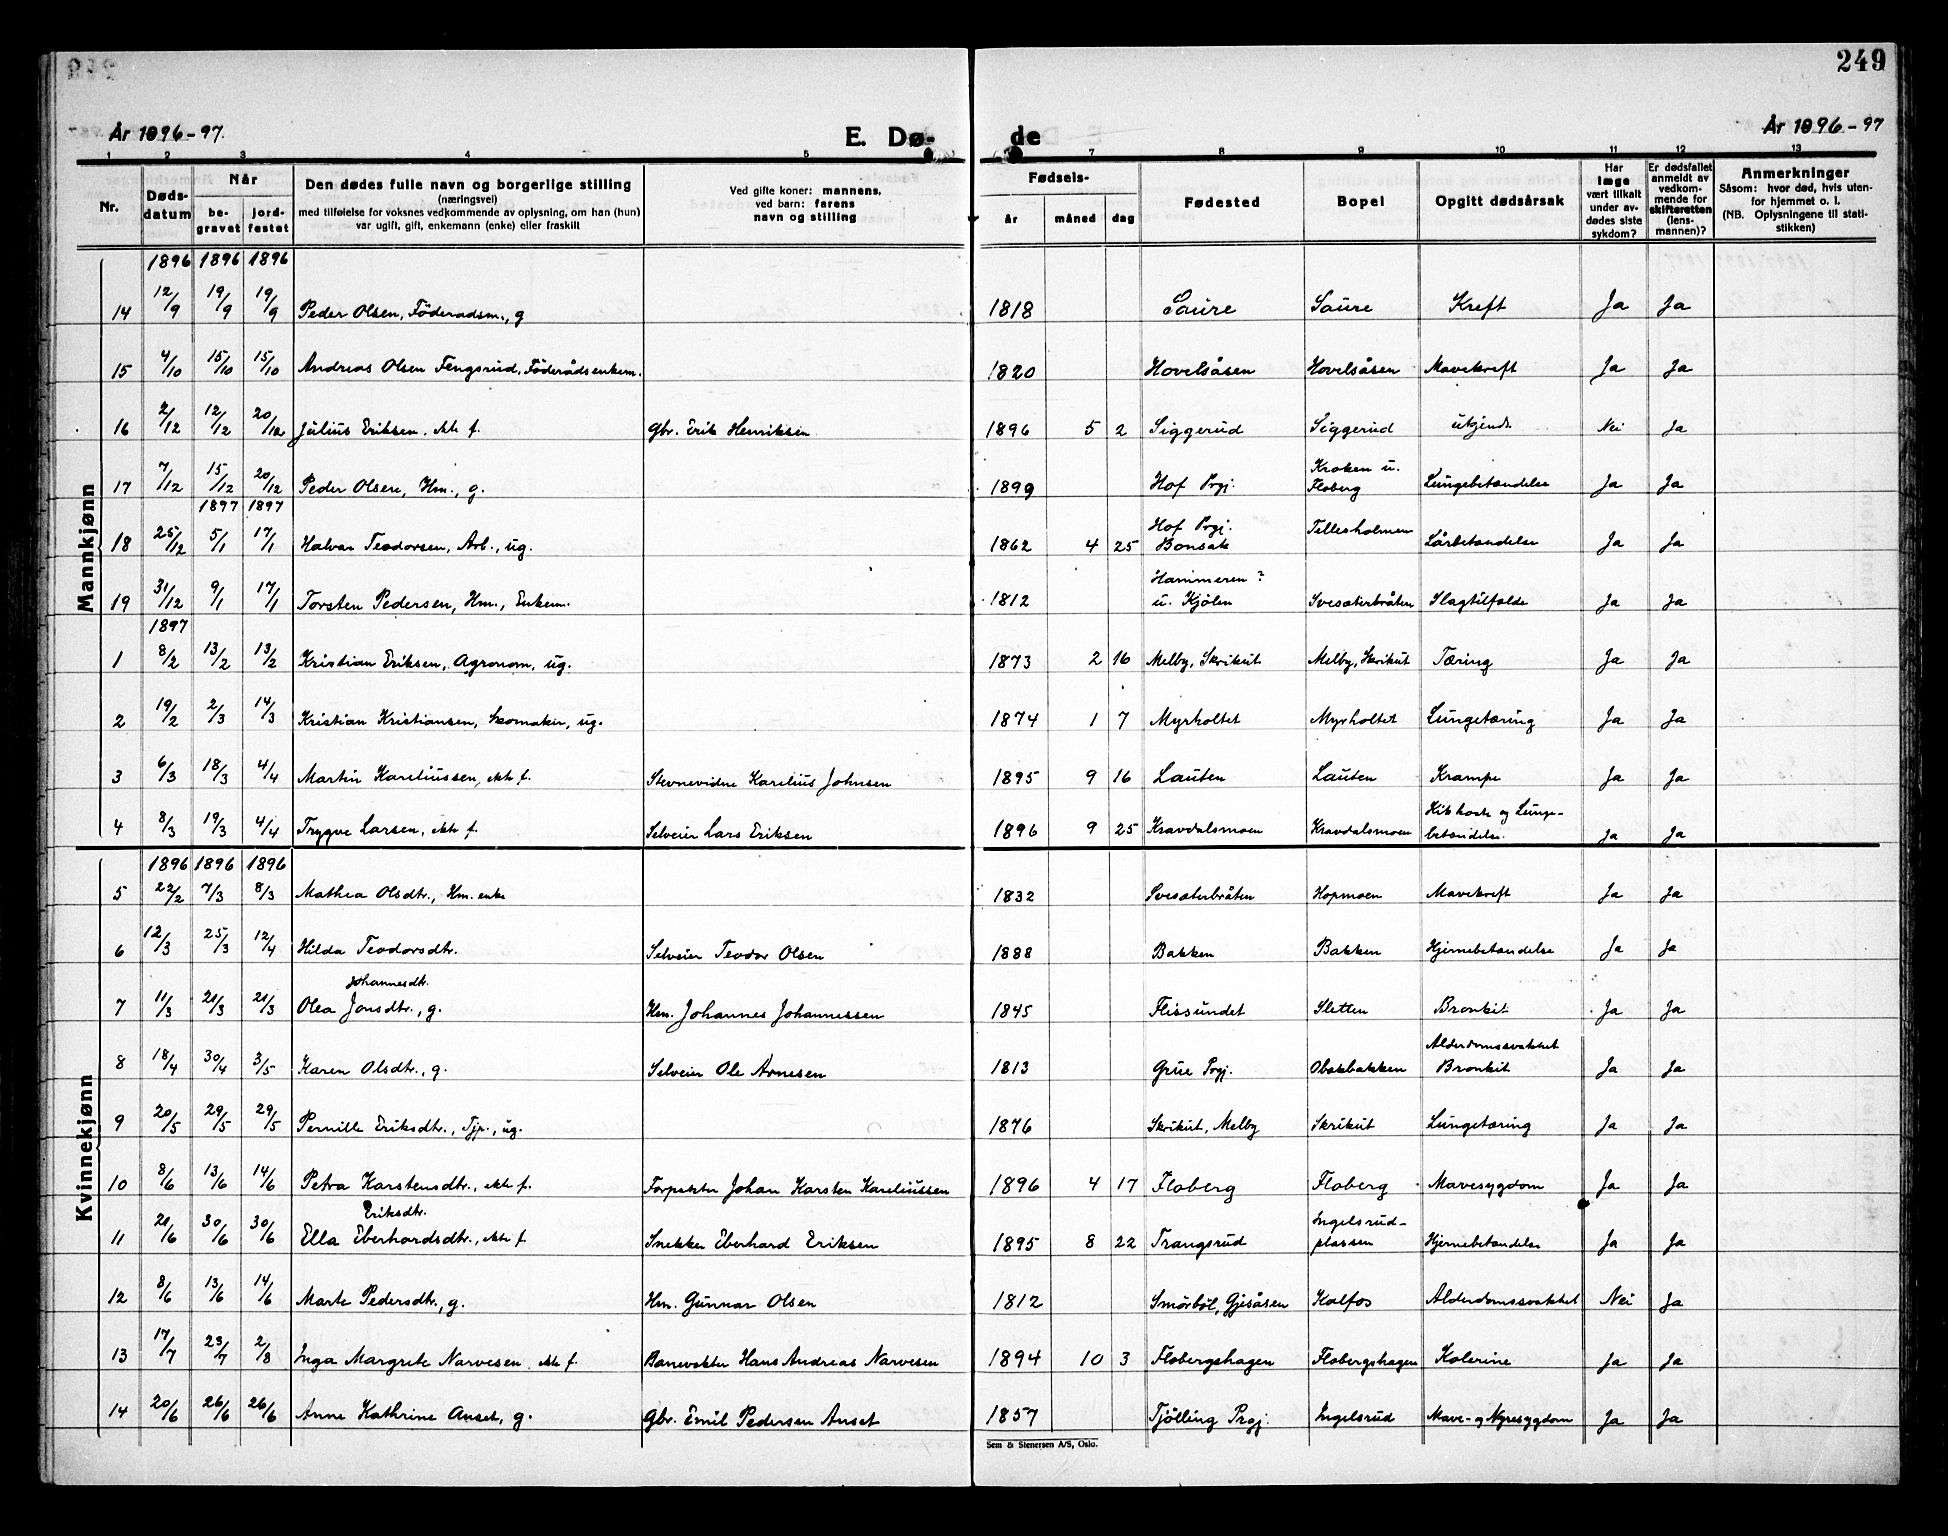 249
År 1896-97.
E. Dø-
de
År 1896-97
1 2 3 4 5 7 8 9 10 11 12 13
Nr.
Døds-
datum
Når
be-
gravet
jord-
festet
Den dødes fulle navn og borgerlige stilling
(næringsvei)
med tilføielse for voksnes vedkommende av oplysning, om han (hun)
var ugift, gift, enkemann (enke) eller fraskilt
Ved gifte koner: mannens,
ved barn: farens
navn og stilling
Fødsels-
år
måned
dag
Fødested
Bopel
Opgitt dødsårsak
Har
læge
vært tilkalt
under av-
dødes siste
sykdom?
Er dødsfallet
anmeldt av
vedkom-
mende for
skifteretten
(lens-
mannen)?
Anmerkninger
Såsom: hvor død, hvis uten-
for hjemmet o. l.
(NB. Oplysningene til stati-
stikken)
Mannkjønn
1896 1896 1896
14 12/9 19/9 19/9 Peder Olsen, Föderadsm., g 1818 Saure Saure Kreft Ja Ja
15 4/10 15/10 15/10 Andreas Olsen Fengsrud, Föderådsenkem. 1820 Hovelsåsen Hovelsåsen Mavekreft Ja Ja
16 2/12 12/12 20/12 Julius Eriksen, ekte f. Gbr. Erik Henriksen 1896 5 2 Siggerud Siggerud utgjends. Nei Ja
17 7/12 15/12 20/12 Peder Olsen, Hm., g. 1899 Hof Prgj. Kroken u.
Floberg Lungebetændelse Ja Ja
1897 1897
18 25/12 5/1 17/1 Halvar Teodorsen, Arb., ug. 1862 4 25 Hof Prgj.
Bonsak Tellesholmen Lårbetændelse Ja Ja
19 31/12 9/1 17/1 Torsten Pedersen, Hm., Enkem. 1812 Hammeren?
u. Kjölen Svesæterbråten Slagtilfælde Ja Ja
1897
1 8/2 13/2 13/2 Kristian Eriksen, Agronom, ug. 1873 2 16 Melby, Skrikut Melby, Skrikut Tæring Ja Ja
2 19/2 2/3 14/3 Kristian Kristiansen, Skomaker, ug. 1874 1 7 Myrholtet Myrholtet Lungetæring Ja Ja
3 6/3 18/3 4/4 Martin Kareliussen, ekte f. Stevnevidne Karelius Johnsen 1895 9 16 Lauten Lauten Krampe Ja Ja
4 8/3 19/3 4/4 Trygve Larsen, ekte f. Selveier Lars Eriksen 1896 9 25 Kravdalsmoen Kravdalsmoen Kikhoste og Lunge-
betændelse. Ja Ja
Kvinnekjønn
1896 1896 1896
5 22/2 7/3 8/3 Mathea Olsdtr., Hm. enke 1832 Svesæterbråten Hopmoen Mavekreft Ja Ja
6 12/3 25/3 12/4 Hilda Teodorsdtr. Selveier Teodor Olsen 1888 Bakken Bakken Hjernebetændelse Ja Ja
Johannesdtr.
7 11/3 21/3 21/3 Olea Jonsdtr., g. Hm. Johannes Johannessen 1845 Flissundet Sletten Bronkit Ja Ja
8 18/4 30/4 3/5 Karen Olsdtr., g. Selveier Ole Arnesen 1813 Grue Prgj. Obakbakken Alderdomssvakket
Bronkit Ja Ja
9 20/5 29/5 29/5 Pernille Eriksdtr., Tjp., ug. 1876 Skrikut, Melby Skrikut Lungetæring Ja Ja
10 8/6 13/6 14/6 Petra Karstensdtr., ekte f. Forpakter Johan Karsten Kareliussen 1896 4 17 Floberg Floberg Mavesygdom Ja Ja
Eriksdtr.
11 21/6 30/6 30/6 Ella Eberhardsdtr., ekte f. Snekker Eberhard Eriksen 1895 8 22 Trangsrud Ingelsrud-
plassen Hjernebetændelse Ja Ja
12 8/6 13/6 14/6 Marte Pedersdtr., g. Hm. Gunnar Olsen 1812 Smörböl, Gjesåsen Kalfos Alderdomssvakket Nei Ja
13 17/7 23/7 2/8 Inga Margrete Narvesen, ekte f. Banevokter Hans Andreas Narvesen 1894 10 3 Flobergshagen Flobergshagen Kolerine Ja Ja
14 20/6 26/6 26/6 Anne Kathrine Anset, g. Gbr. Emil Pedersen Anset 1857 Tjölling Prgj. Ingelsrud Mave- og Nyresygdom Ja Ja
Sem & Stenersen A/S, Oslo.